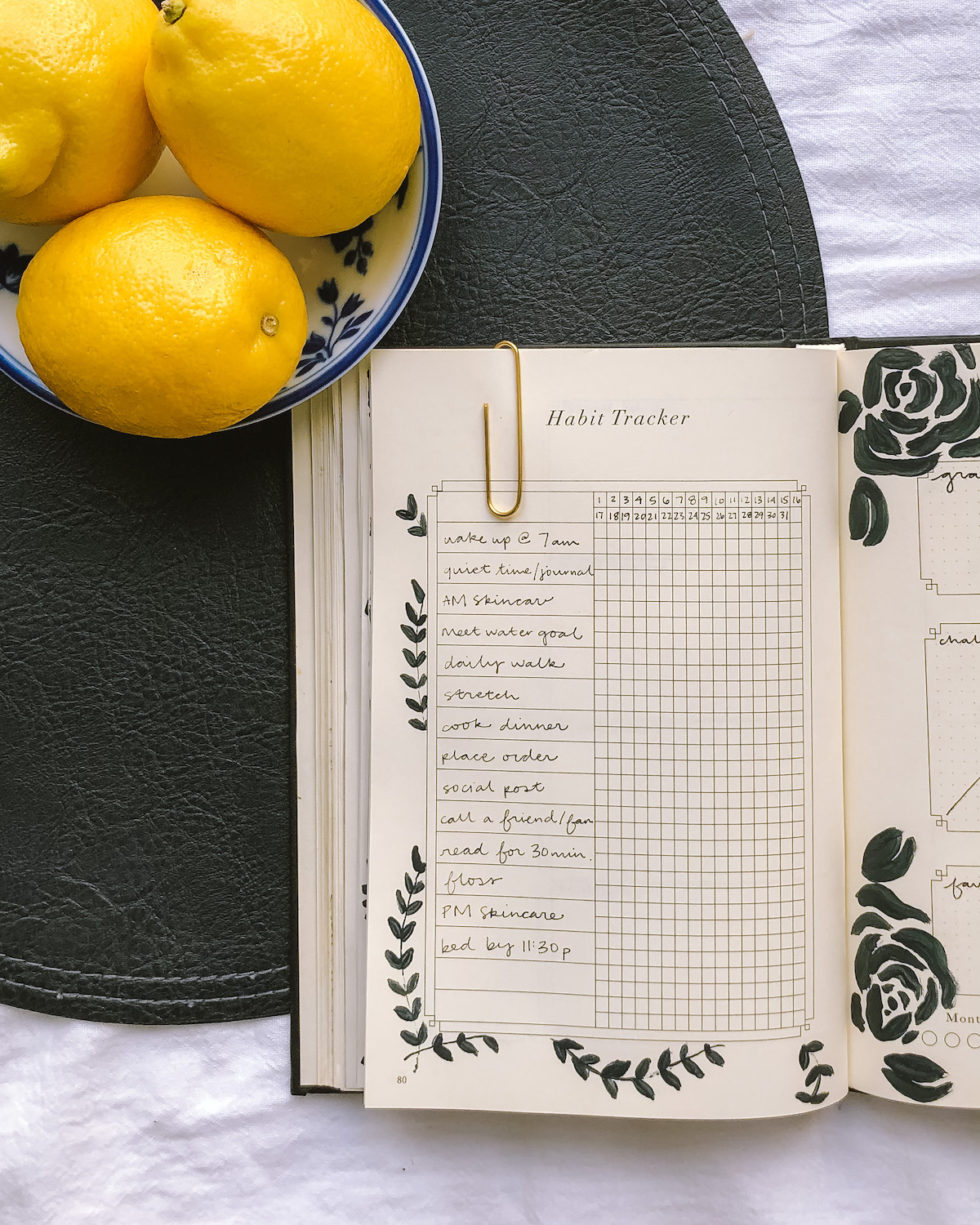 Habit Tracker
1 2 3 4 5 6 7 8 9 10 11 12 13 14 15 16
17 18 19 20 21 22 23 24 25 26 27 28 29 30 31
wake up @ 7am
quiet time/journal
AM skincare
meet water goal
daily walk
stretch
cook dinner
place order
social post
call a friend/fam
read for 30 min.
floss
PM skincare
bed by 11:30p
80
gra
chal
fav
Mont